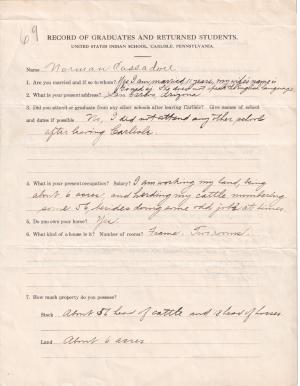 69
RECORD OF GRADUATES AND RETURNED STUDENTS.
UNITED STATES INDIAN SCHOOL, CARLISLE, PENNSYLVANIA.
Name Norman Cassadore
1. Are you married and if so to whom? Yes I am married 11 years, my wife's name is
She does not speak the English language
2. What is your present address? San Carlos Arizona
3. Did you attend or graduate from any other schools after leaving Carlisle? Give names of school
and dates if possible No, I did not attend any other schools
after leaving Carlisle.
4. What is your present occupation? Salary? I am working my land, being
about 6 acres and herding my cattle numbering
some 56, besides doing some odd jobs at times.
5. Do you own your home? Yes
6. What kind of a house is it? Number of rooms? Frame. Two rooms.
7. How much property do you possess?
Stock About 56 head of cattle and 3 head of horses
Land About 6 acres